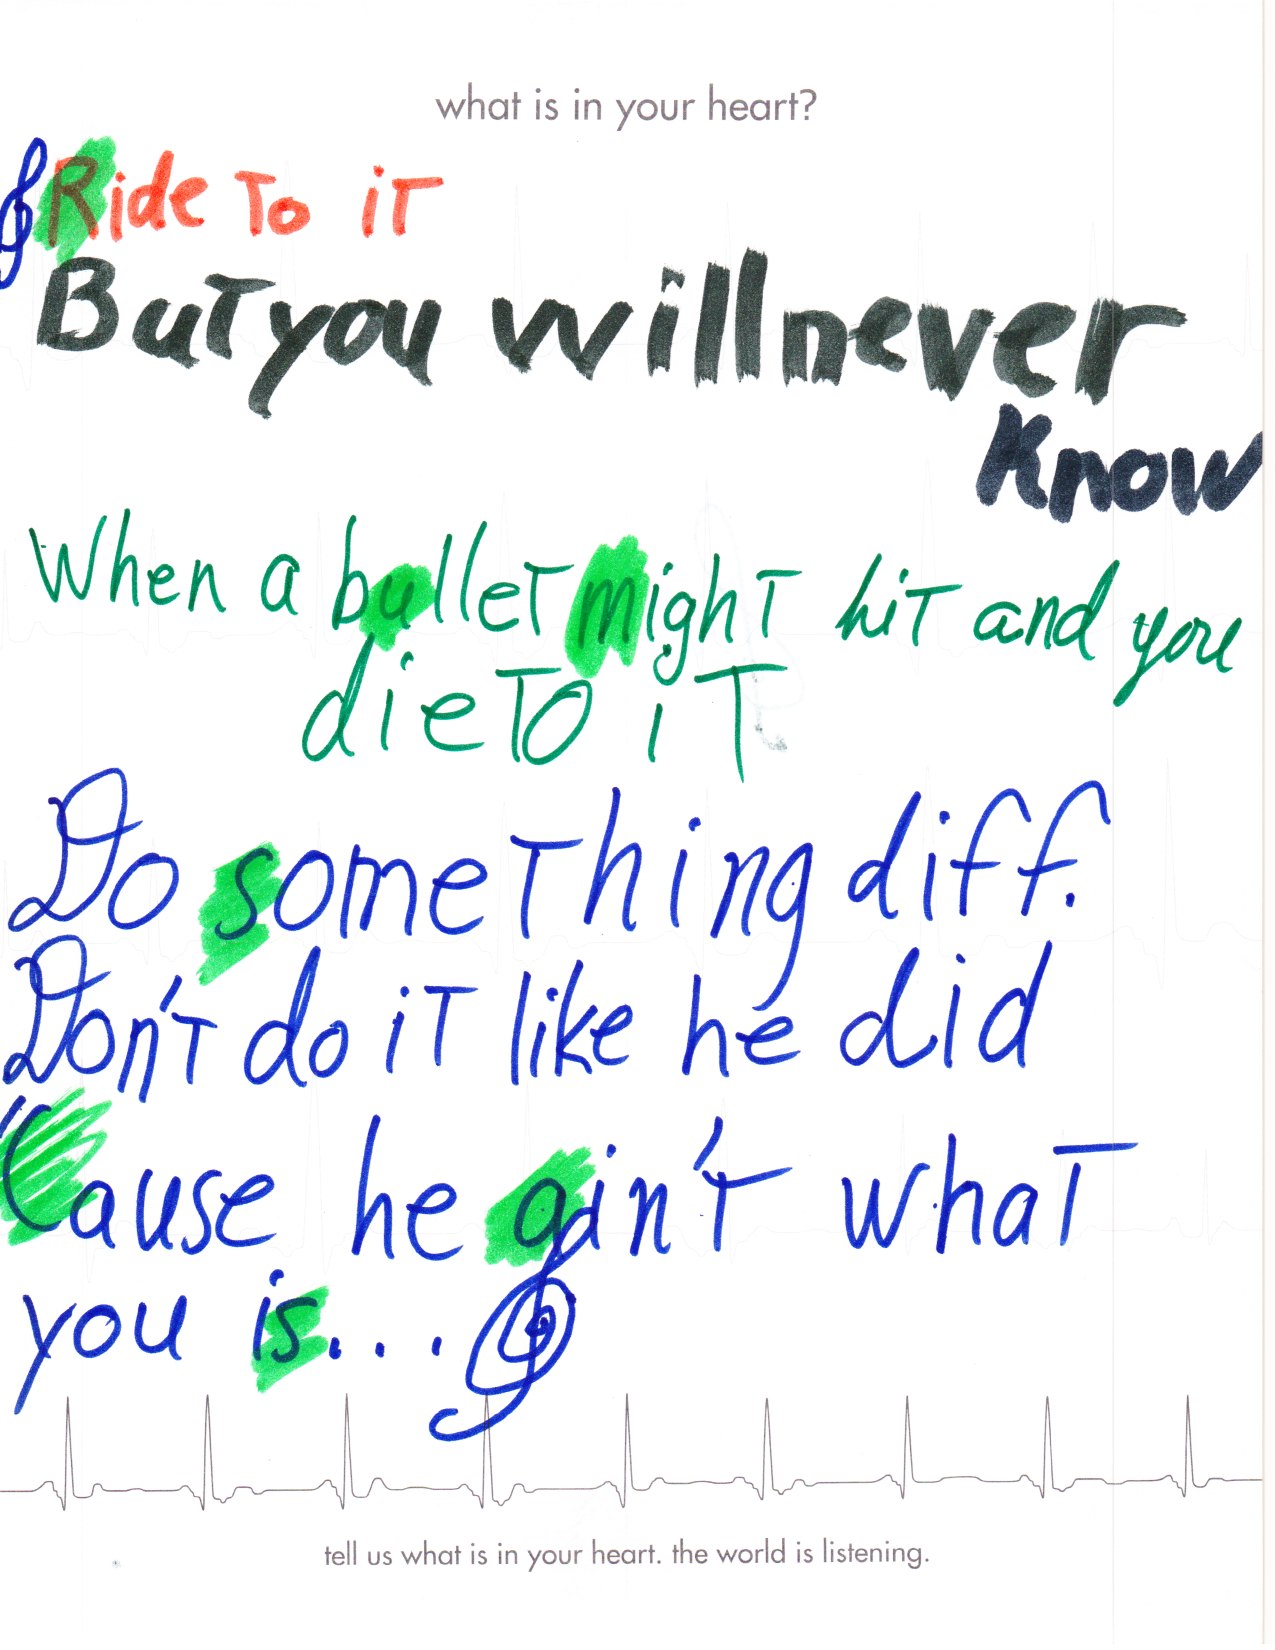 what is in your heart?
Ride To iT
But you will never
Know
When a bulleT mighT hiT and you
die To iT
Do someThing diff.
Don'T do iT like he did
'Cause he ain'T whaT
you is...
tell us what is in your heart. the world is listening.